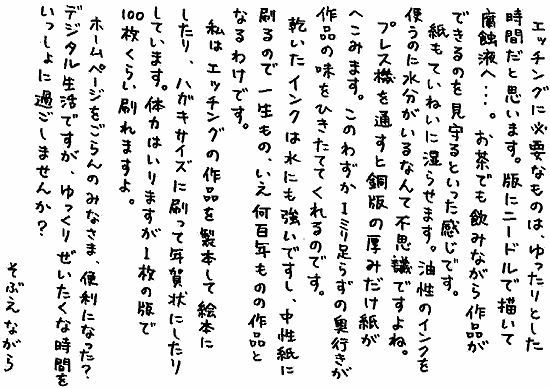 エッチングに必要なものは、ゆったりとした
時間だと思います。版にニードルで描いて
腐蝕液へ・・・。お茶でも飲みながら作品が
できるのを見守るといった感じです。
紙もていねいに湿らせます。油性のインクを
使うのに水分がいるなんて不思議ですよね。
プレス機を通すと銅版の厚みだけ紙が
へこみます。このわずか1ミリ足らずの奥行きが
作品の味をひきたててくれるのです。
乾いたインクは水にも強いですし、中性紙に
刷るので一生もの、いえ何百年ものの作品と
なるわけです。
私はエッチングの作品を製本して絵本に
したり、ハガキサイズに刷って年賀状にしたり
しています。体力はいりますが1枚の版で
100枚くらい刷れますよ。
ホームページをごらんのみなさま、便利になった?
デジタル生活ですが、ゆっくりぜいたくな時間を
いっしょに過ごしませんか?
そぶえながら